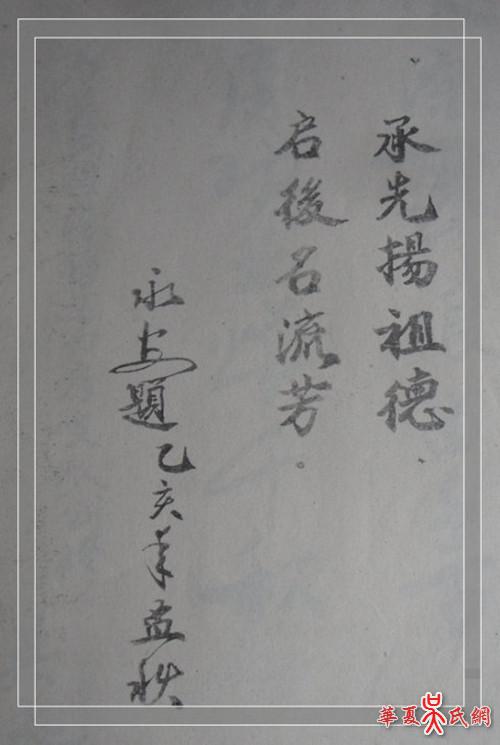 承先揚祖德.
启後名流芳.
永安題乙亥年孟秋
華夏吴氏網